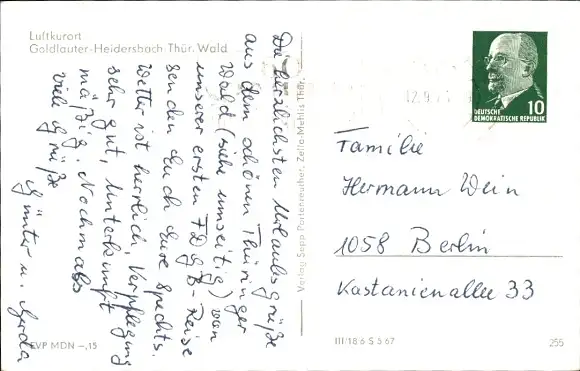 Luftkurort
Goldlauter-Heidersbach Thür. Wald
Die herzlichsten Urlaubsgrüße
aus dem schönen Thüringer
Wald (siehe umseitig) von
unserer ersten FDGB-Reise
senden Euch Eure Spechts.
Wetter ist herrlich, Verpflegung
sehr gut, Unterkunft
mäßig. Nochmals
viele Grüße
Günter u. Gerda
EVP MDN -,15
Verlag Sepp Partenreuther, Zella-Mehlis Thür.
12.9.
10
DEUTSCHE
DEMOKRATISCHE REPUBLIK
Familie
Hermann Wein
1058 Berlin
Kastanienallee 33
III/18/6 S 5 67
255